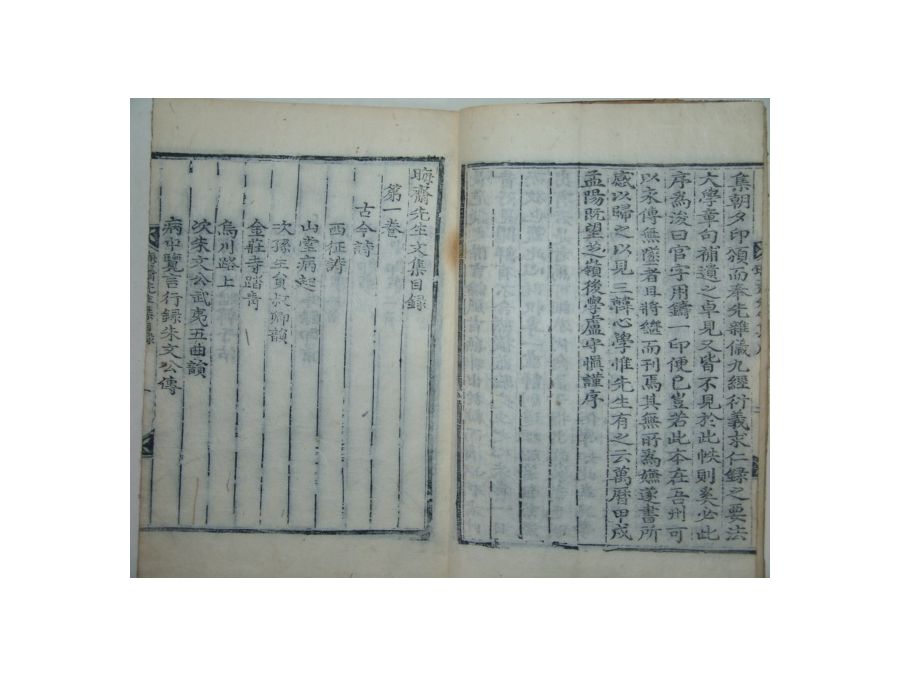 集朝夕印頒而奉先雜儀九經衍義求仁録之要法
大學章句補遺之卓見又皆不見於此帙則奚必此
序爲浚曰官字用鑄一印便已豈若此本在吾州可
以永傳無墜者且將繼而刊焉其無所爲嫌遂書所
感以歸之以見三韓心學惟先生有之云萬曆甲戌
孟陽旣望芝嶺後學盧守愼謹序
晦齋先生文集目録
第一卷
古今詩
西征詩
山堂病起
次孫生員叔卿韻
金莊寺踏青
烏川路上
次朱文公武夷五曲韻
病中覽言行録朱文公傳